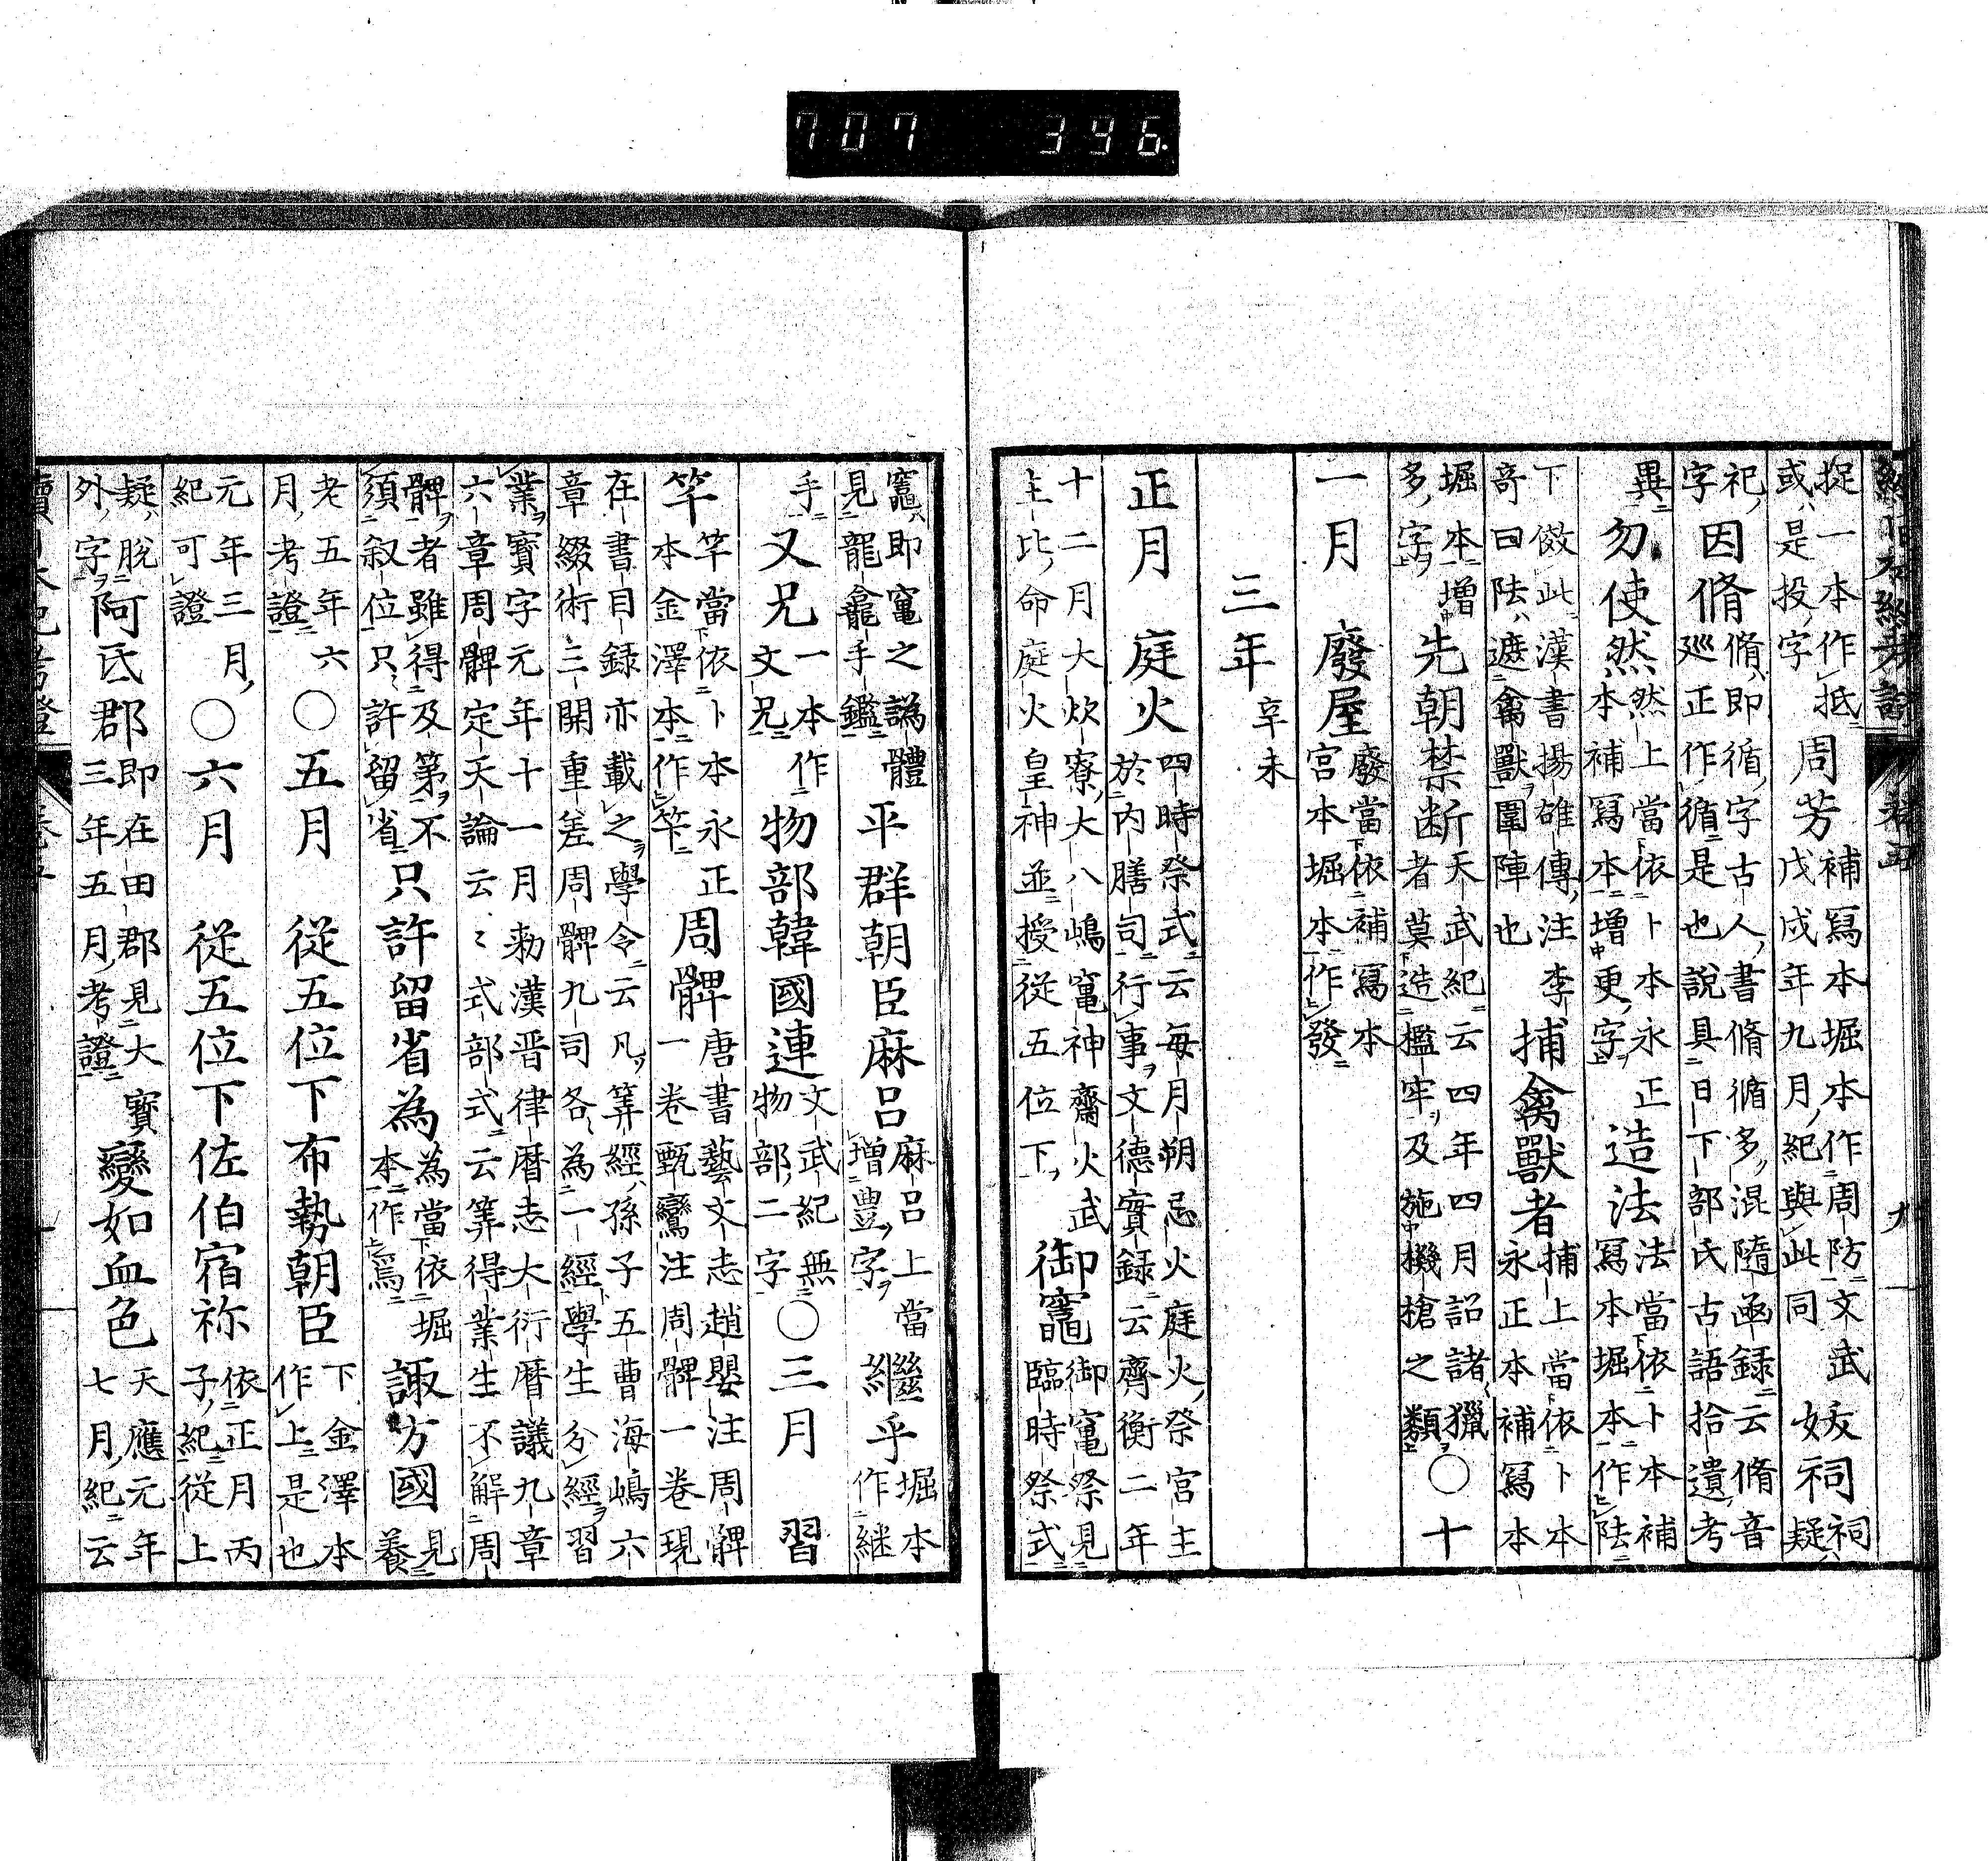 707 346.
捉一本作抵
或是投字
周芳
補寫本堀本作周防文武
戊戌年九月紀與此同
妭祠
祠
疑
祀
字
因脩
脩即循字古人書脩循多混隨函録云脩音
巡正作循是也說具日下部氏古語拾遺考
異
勿使然
然上當依卜本永正
本補寫本增更字
造法
法當依卜本補
寫本堀本作陸
下倣此漢書揚雄傳注李
奇曰陸遮禽獸圍陣也
捕禽獸者
捕上當依卜本
永正本補寫本
堀本增
多字
先朝禁断
天武紀云四年四月詔諸獵
者莫造檻穽及施機槍之類
〇十
一月
廢屋
廢當依補寫本
宮本堀本作發
三年
辛未
正月
庭火
四時祭式云每月朔忌火庭火祭宮主
於内膳司行事文德實録云齊衡二年
十二月大炊寮大八嶋竈神齋火武
主比命庭火皇神並授從五位下
御竈
御竈祭見
臨時祭式
竈即竈之譌體
見龍龕手鑑
平群朝臣麻呂
麻呂上當
增豊字
繼乎
堀本
作継
手
又兄
一本作
文兄
物部韓國連
文武紀無
物部二字
〇三月
習
竿
竿當依卜本永正
本金澤本作筭
周髀
唐書藝文志趙嬰注周髀
一卷甄鸞注周髀一卷現
在書目録亦載之學令云凡筭經孫子五曹海嶋六
章綴術三開重差周髀九司各為一經學生分經習
業寶字元年十一月勅漢晋律暦志大衍暦議九章
六章周髀定天論云〻式部式云筭得業生不解周
髀者雖得及第不
須叙位只許留省
只許留省為
為當依堀
本作焉
諏方國
見
養
老五年六
月考證
〇五月
從五位下布勢朝臣
下金澤本
作上是也
元年三月
紀可證
〇六月
從五位下佐伯宿祢
依正月丙
子紀從上
疑脫
外字
阿氐郡
即在田郡見大寶
三年五月考證
變如血色
天應元年
七月紀云